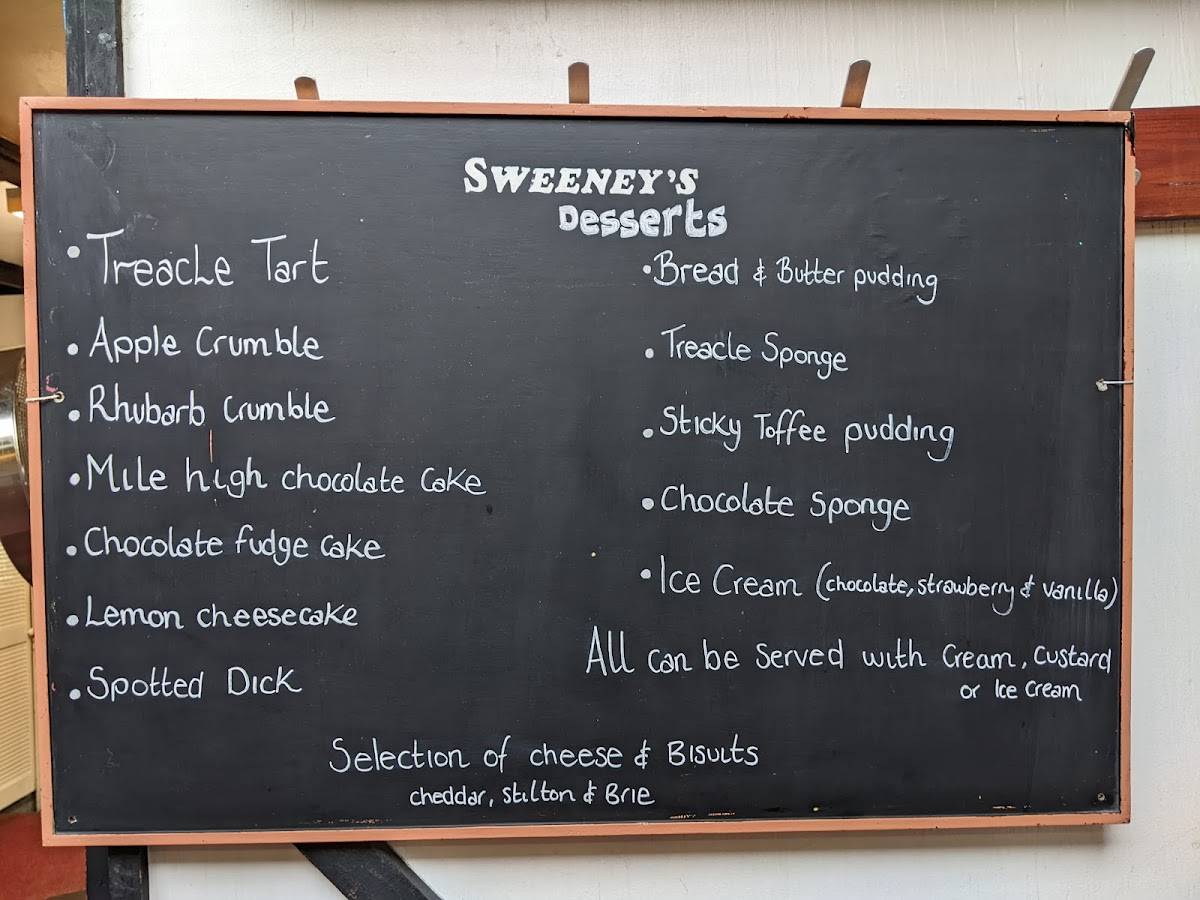 SWEENEY'S
Desserts
• Treacle Tart
• Apple Crumble
• Rhubarb Crumble
• Mile high chocolate Cake
• Chocolate fudge Cake
• Lemon cheesecake
• Spotted Dick
• Bread & Butter pudding
• Treacle Sponge
• Sticky Toffee pudding
• Chocolate Sponge
• Ice Cream (chocolate, strawberry & vanilla)
All can be Served with Cream, Custard
or Ice Cream
Selection of cheese & Bisuits
cheddar, stilton & Brie